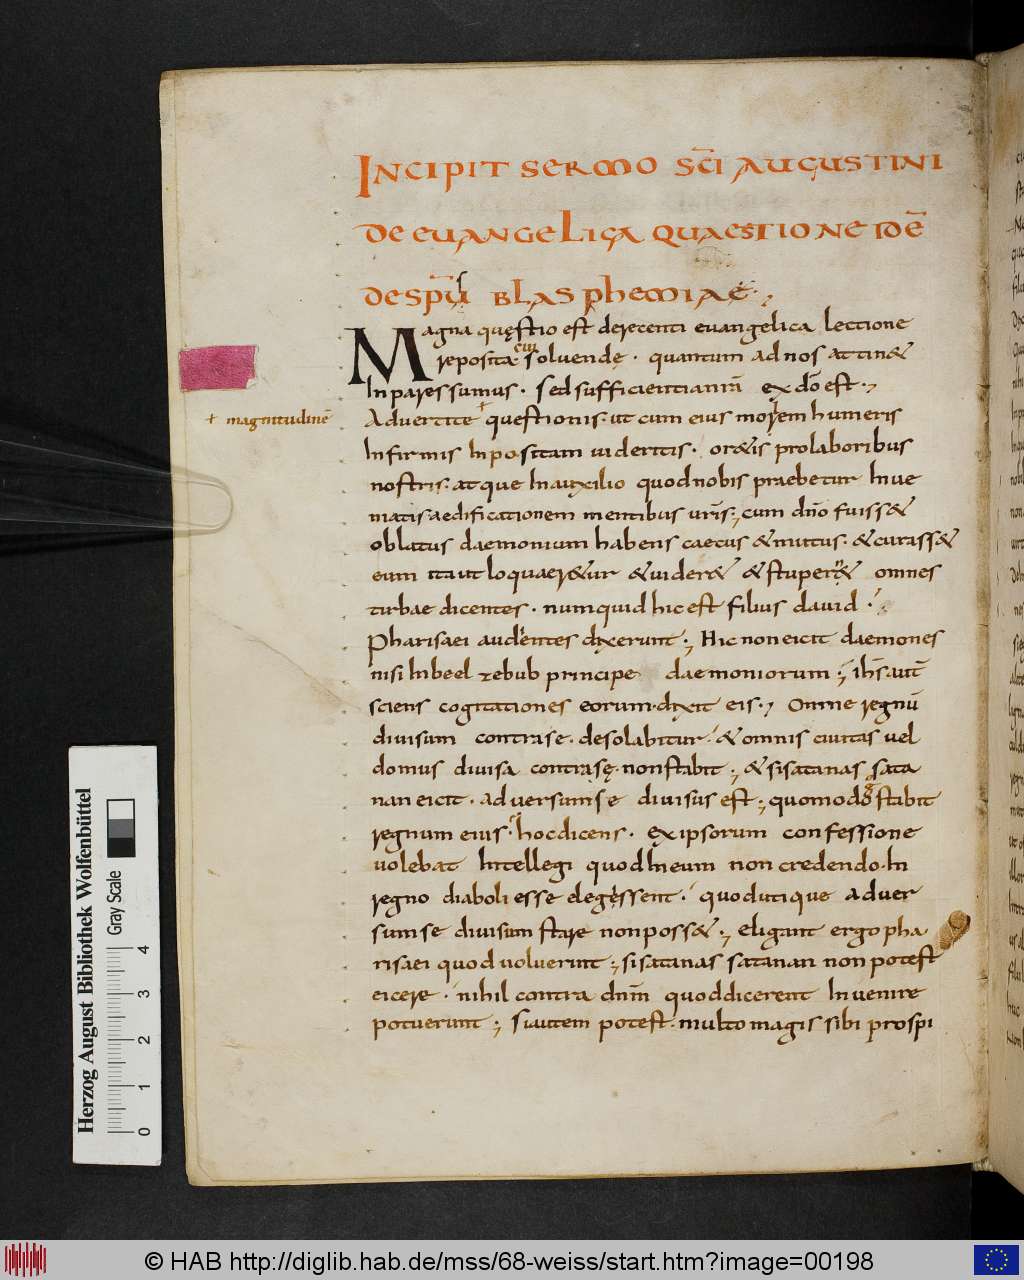 INCIPIT SERMO SC̄I AUGUSTINI
DE EUANGELICA QUAESTIONE IDĒ
DE SPŪ BLASPHEMIAE
Magna quęstio est derecenti euangelica lectione
reposita cui soluendę · quantum ad nos attin&
Inpares sumus · sed sufficientianr̄ı ex dō est ·,
+ magnitudinē
Aduertite + questionis · ut cum eius morem humeris
Infirmis Inpositam uideritis · or&is prolaboribus
nostris · atque Inauxilio quod nobis praebetur Inue
matis aedificationem mentibus ur̄is ·, cum dn̄o fuiss&
oblatus daemonium habens caecus & mutus · & curass&
eum ita ut loquaer&ur & uider& & stuper& omnes
turbae dicentes · numquid hic est filius dauid ·
Pharisaei audientes dixerunt ; Hic non eicit daemones
nisi Inbeelzebub principe daemoniorum ; ih̄s aut̄
sciens cogitationes eorum · dixit eis ·, Omne regnū
diuisum contra se · desolabitur · & omnis ciuitas uel
domus diuisa contrasę · non stabit ; & si satanas sata
nan eicit · aduersum se diuisus est ; quomodo stabit
regnum eius · hoc dicens · ex ipsorum confessione
uolebat Intellegi quod Ineum non credendo · In
regno diaboli esse elegissent · quod utique aduer
sum se diuisum stare non poss& ·, eligant ergo pha
risaei quod uoluerint ; si satanas satanan non potest
eicere · nihil contra dn̄m quod dicerent Inuenire
potuerunt ; si autem potest · multo magis sibi prospi
Herzog August Bibliothek Wolfenbüttel
Gray Scale
0 1 2 3 4
© HAB http://diglib.hab.de/mss/68-weiss/start.htm?image=00198